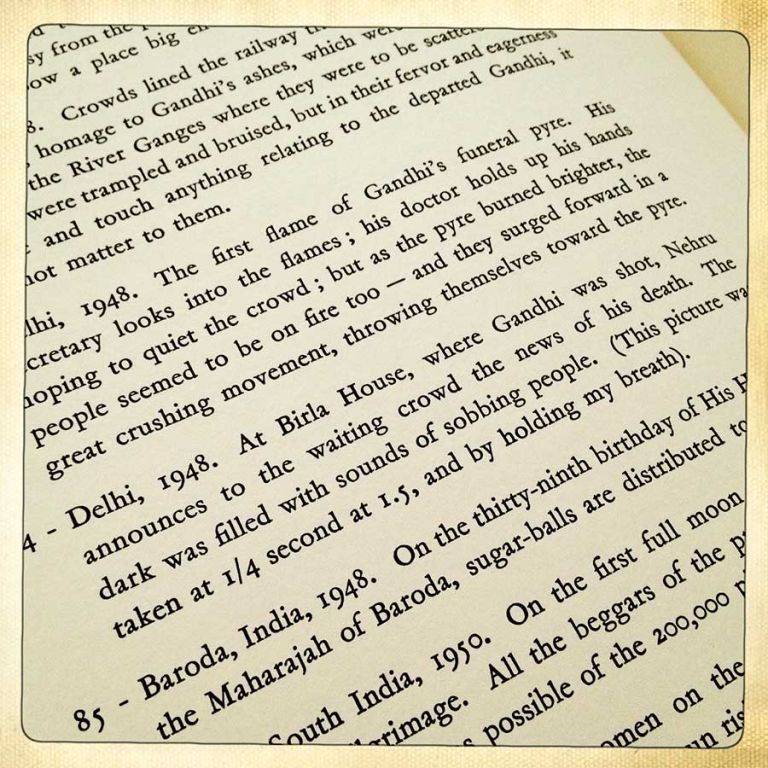 from the
ow a place big
8. Crowds lined the railway
homage to Gandhi's ashes, which
the River Ganges where they were to be
were trampled and bruised, but in their fervor and eagerness
and touch anything relating to the departed Gandhi, it
not matter to them.
lhi, 1948. The first flame of Gandhi's funeral pyre. His
cretary looks into the flames; his doctor holds up his hands
hoping to quiet the crowd; but as the pyre burned brighter, the
people seemed to be on fire too — and they surged forward in a
great crushing movement, throwing themselves toward the pyre.
4 - Delhi, 1948. At Birla House, where Gandhi was shot, Nehru
announces to the waiting crowd the news of his death. The
dark was filled with sounds of sobbing people. (This picture wa
taken at 1/4 second at 1.5, and by holding my breath).
85 - Baroda, India, 1948. On the thirty-ninth birthday of His H
the Maharajah of Baroda, sugar-balls are distributed to
South India, 1950. On the first full moon
rimage. All the beggars of the p
s possible of the 200,000 p
omen on the
un ris